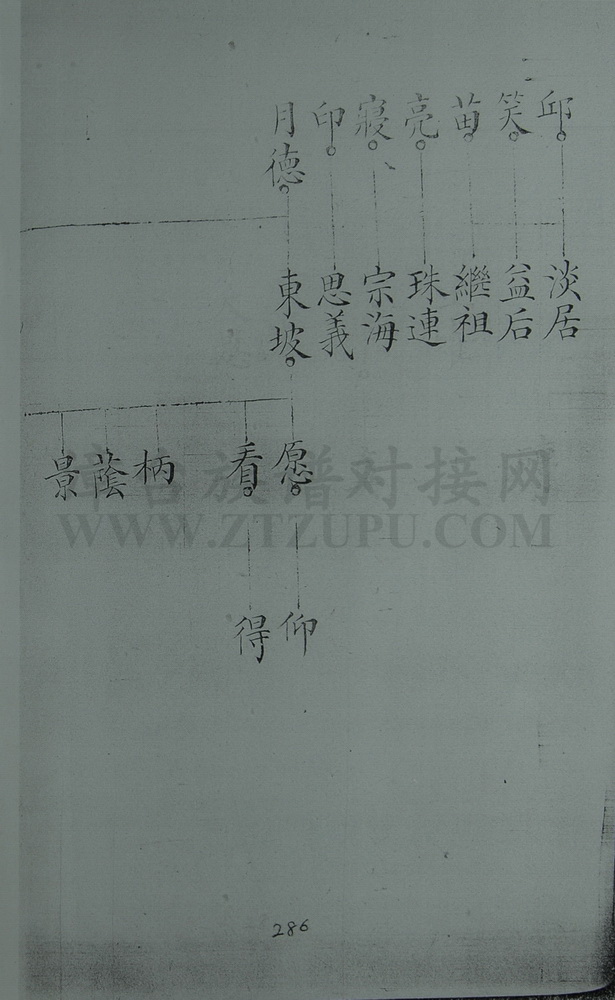 邱
笑
苗
亮
寢
印
月德
淡居
益后
繼祖
珠連
宗海
思義
東坡
愿
看
柄
蔭
景
仰
得
族谱对接网
WWW.ZTZUPU.COM
286